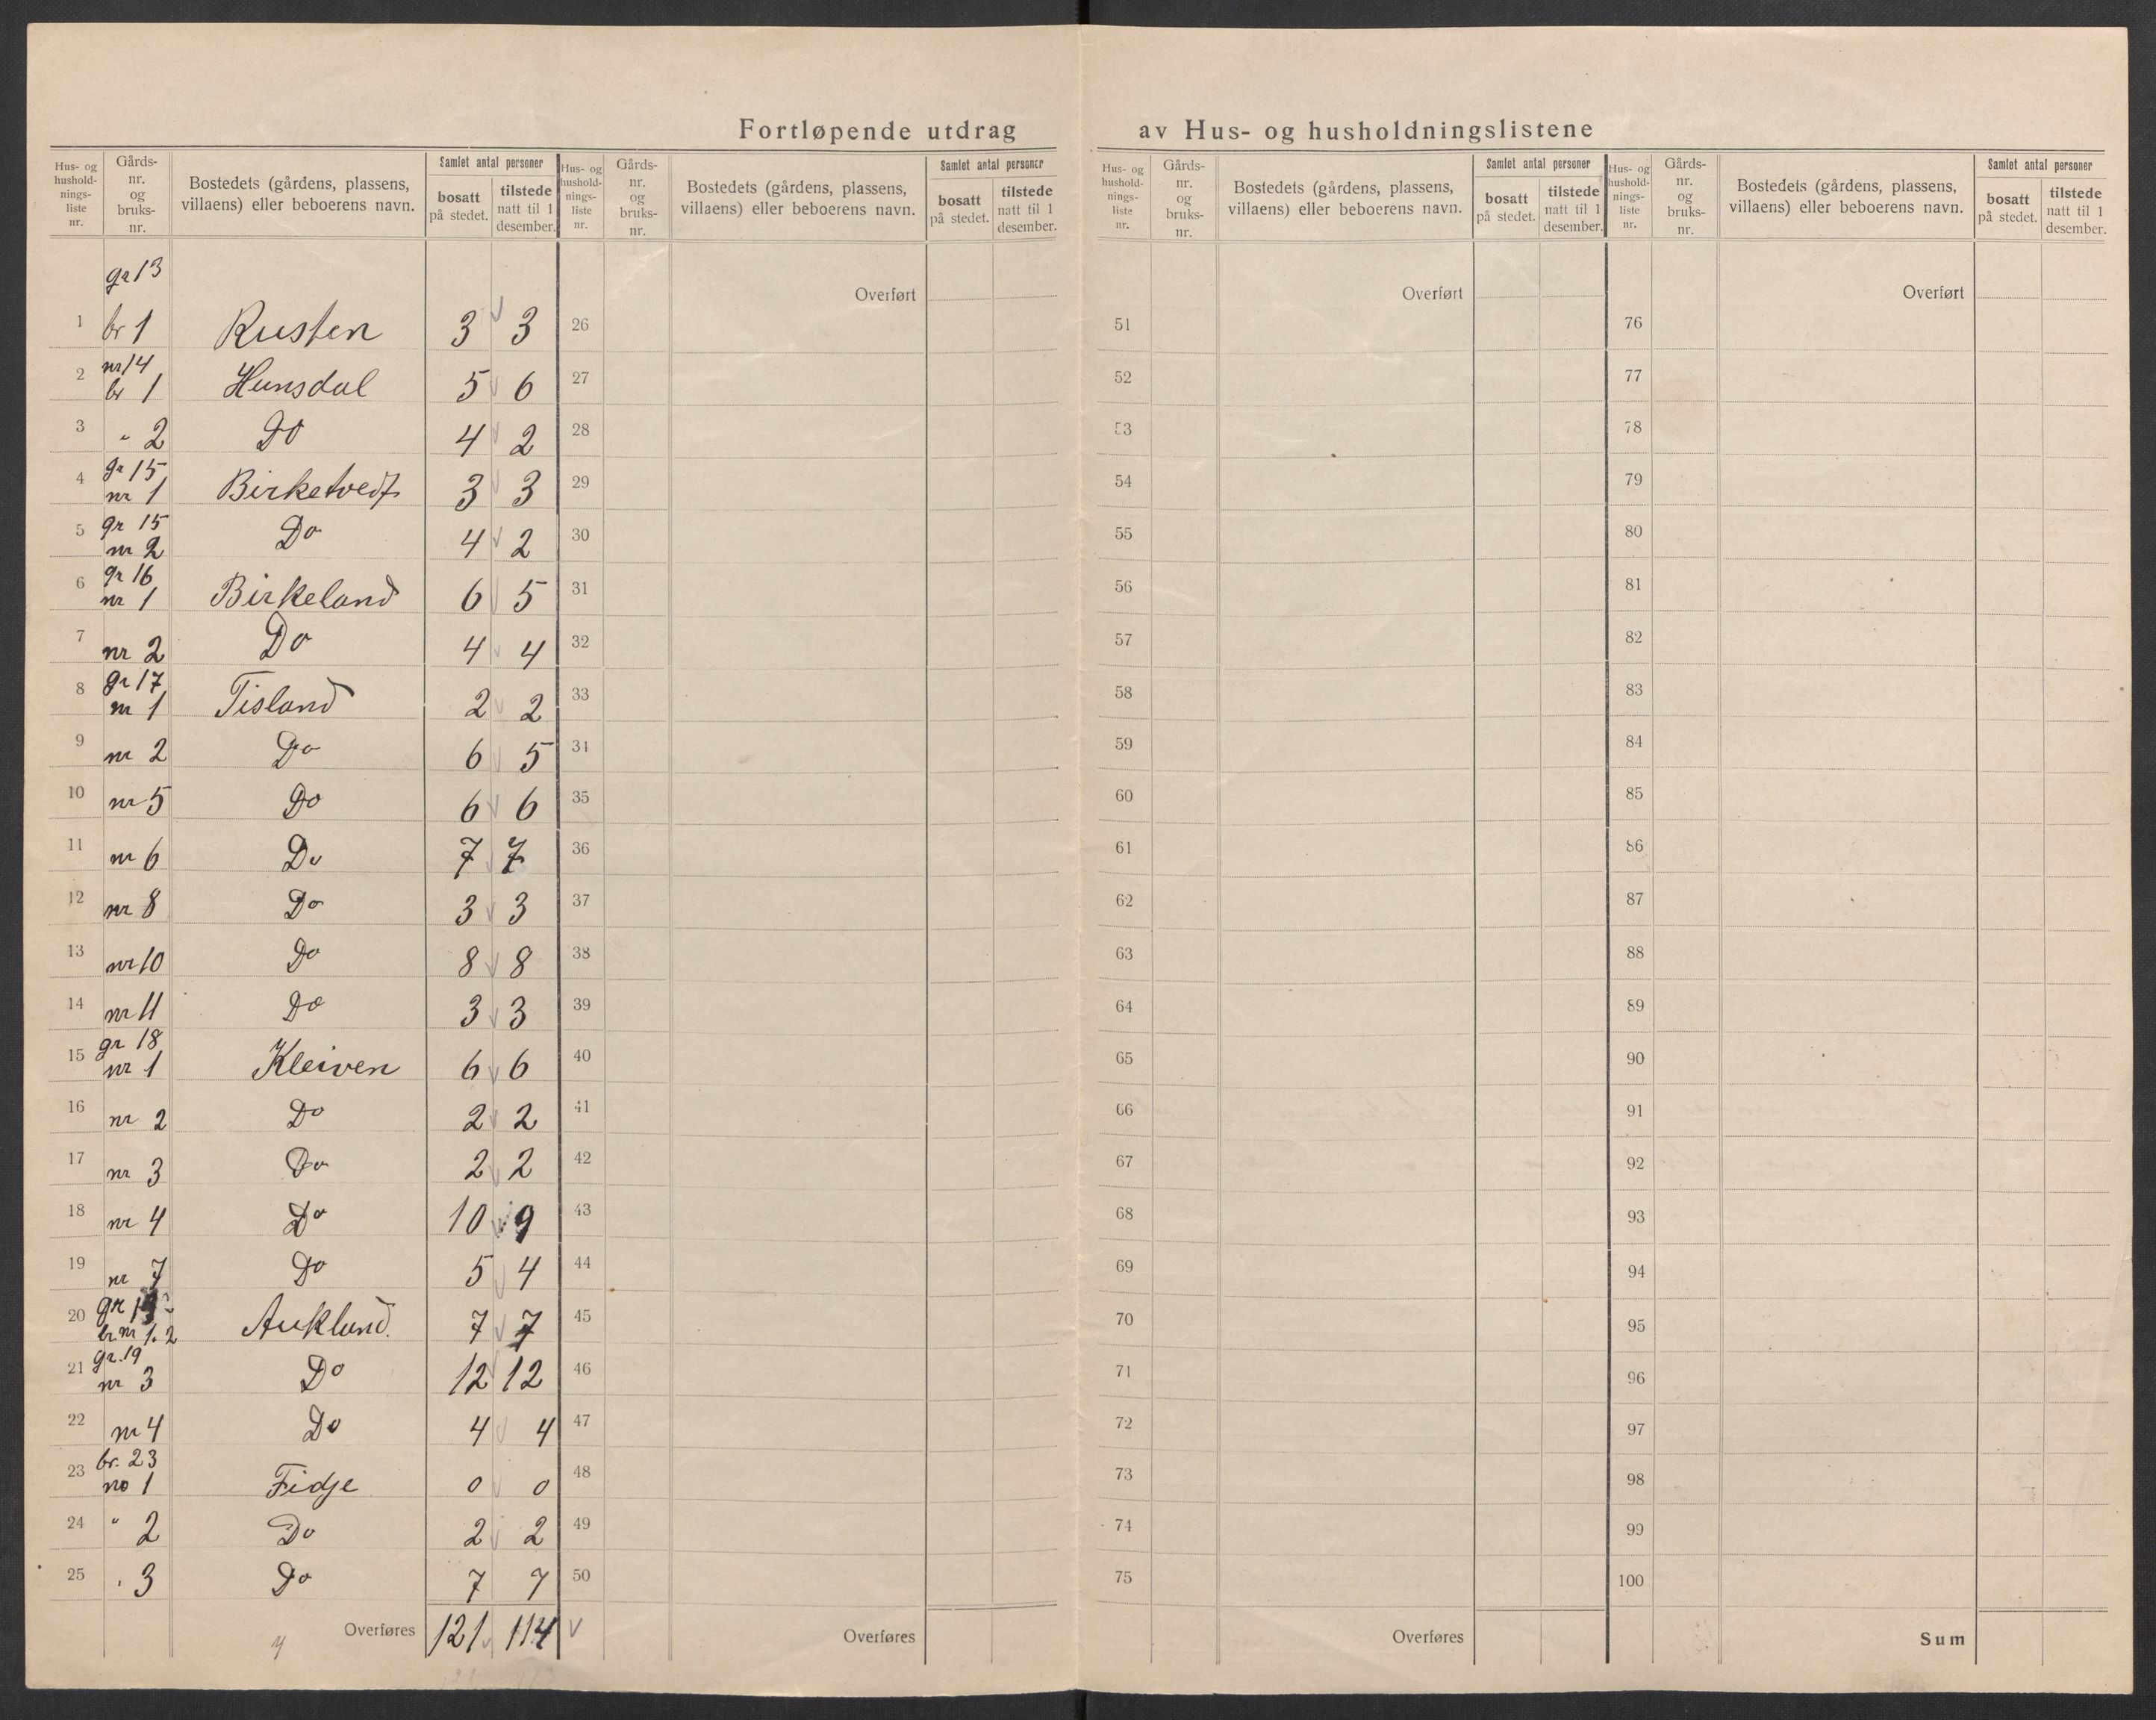 Fortløpende utdrag av Hus- og husholdningslistene
Hus- og hushold-nings-liste nr. | Gårds-nr. og bruks-nr. | Bostedets (gårdens, plassens, villaens) eller beboerens navn. | Samlet antal personer | bosatt på stedet. | tilstede natt til 1 desember.
Hus- og hushold-nings-liste nr. | Gårds-nr. og bruks-nr. | Bostedets (gårdens, plassens, villaens) eller beboerens navn. | Samlet antal personer | bosatt på stedet. | tilstede natt til 1 desember.
gr 13
1 br 1 Rusten 3 3
2 nr 14 br 1 Hunsdal 5 6
3 " 2 Do 4 2
4 gr 15 nr 1 Birketvedt 3 3
5 gr 15 nr 2 Do 4 2
6 gr 16 nr 1 Birkeland 6 5
7 nr 2 Do 4 4
8 gr 17 nr 1 Tisland 2 2
9 nr 2 Do 6 5
10 nr 5 Do 6 6
11 nr 6 Do 7 7
12 nr 8 Do 3 3
13 nr 10 Do 8 8
14 nr 11 Do 3 3
15 gr 18 nr 1 Kleiven 6 6
16 nr 2 Do 2 2
17 nr 3 Do 2 2
18 nr 4 Do 10 9
19 nr 7 Do 5 4
20 gr br. nr 1. 2 Aukland. 7 7
21 gr. 19 nr 3 Do 12 12
22 nr 4 Do 4 4
23 br. 23 no 1 Fidje 0 0
24 " 2 Do 2 2
25 " 3 Do 7 7
Overføres 121 114
Overført
26
27
28
29
30
31
32
33
34
35
36
37
38
39
40
41
42
43
44
45
46
47
48
49
50
Overføres
Hus- og hushold-nings-liste nr. | Gårds-nr. og bruks-nr. | Bostedets (gårdens, plassens, villaens) eller beboerens navn. | Samlet antal personer | bosatt på stedet. | tilstede natt til 1 desember.
Overført
51
52
53
54
55
56
57
58
59
60
61
62
63
64
65
66
67
68
69
70
71
72
73
74
75
Overføres
Hus- og hushold-nings-liste nr. | Gårds-nr. og bruks-nr. | Bostedets (gårdens, plassens, villaens) eller beboerens navn. | Samlet antal personer | bosatt på stedet. | tilstede natt til 1 desember.
Overført
76
77
78
79
80
81
82
83
84
85
86
87
88
89
90
91
92
93
94
95
96
97
98
99
100
Sum